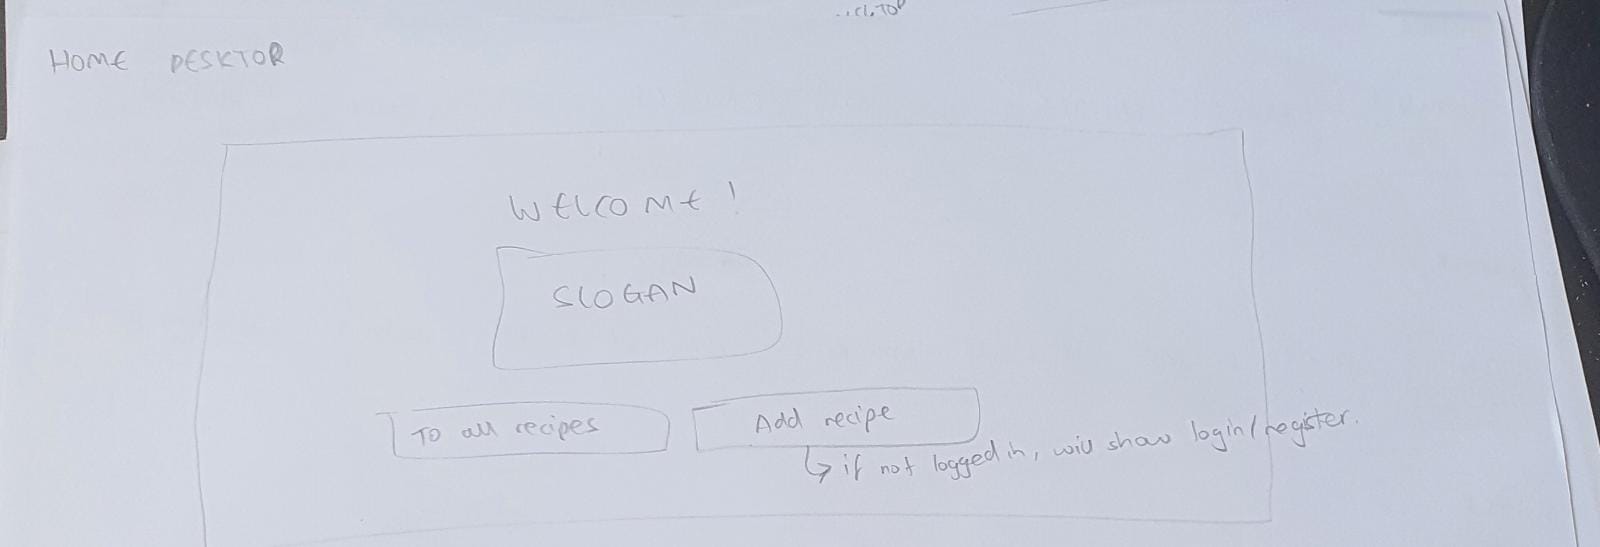 HOME DESKTOP
WELCOME!
SLOGAN
TO all recipes
Add recipe
↳ if not logged in, will show login/register.